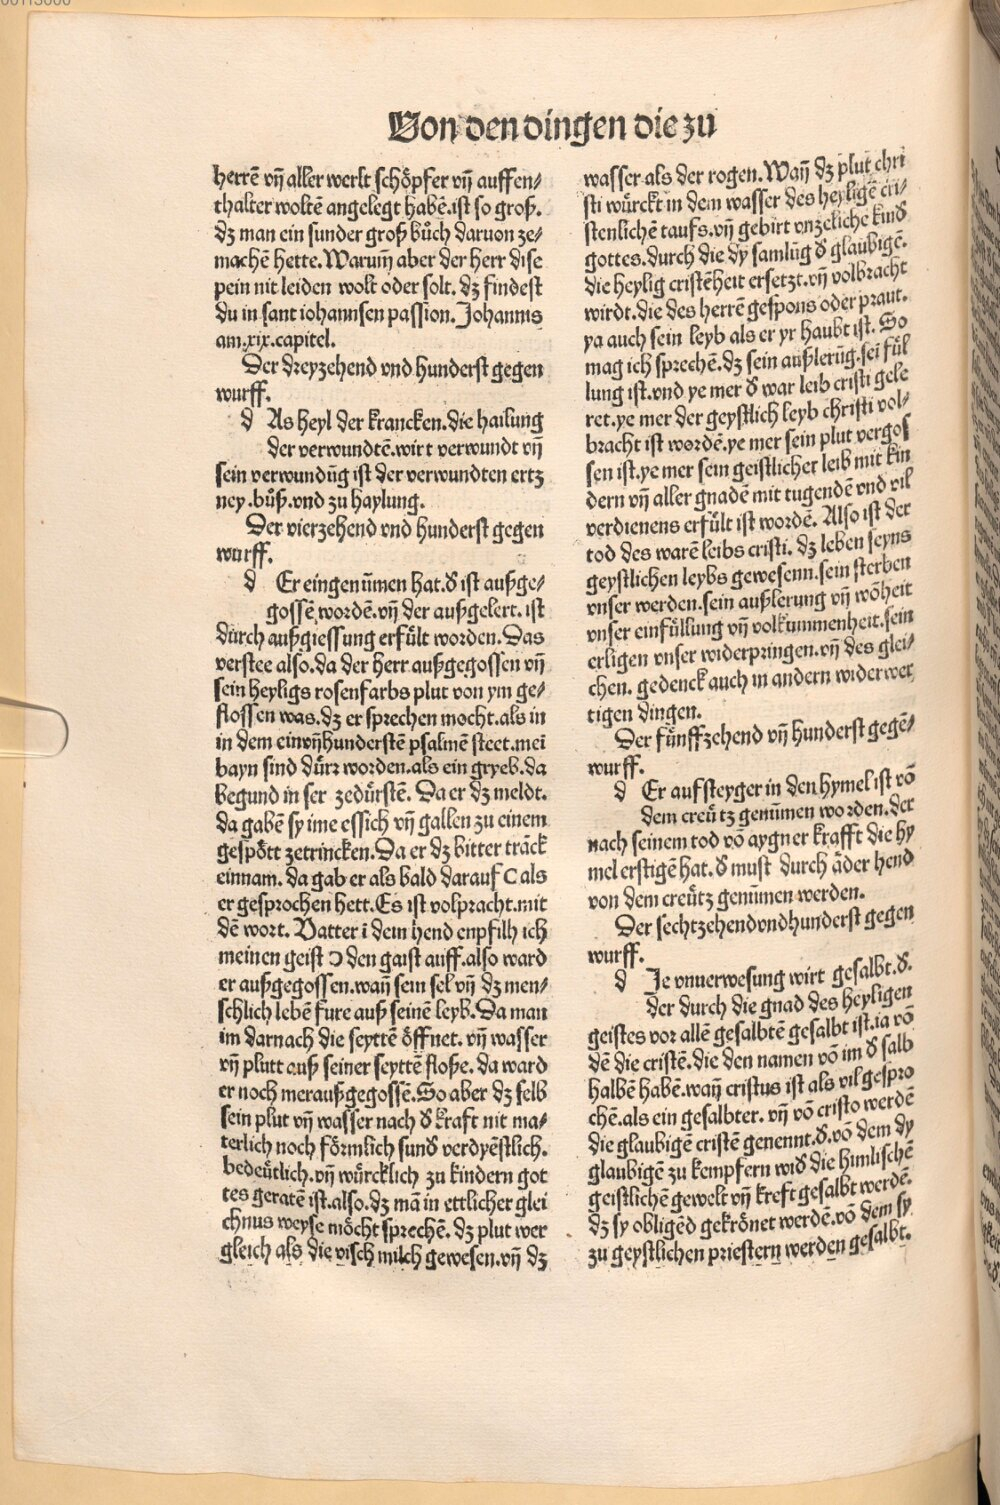 00113000
Von den dingen die zu
herrē vñ aller werlt schöpfer vñ auffen⸗
thalter woltē angelegt habē.ist so groß.
dz man ein sunder groß bůch daruon ze⸗
machē hette.Warum̄ aber der herr dise
pein nit leiden wolt oder solt. dz findest
du in sant iohannsen passion. Johannis
am.xix.capitel.
Der dreyzehend vnd hunderst gegen
wurff.
d As heyl der krancken.die hailung
der verwundtē.wirt verwundt vñ
sein verwundūg ist der verwundten ertz
ney.bůß.vnd zu haylung.
Der vierzehend vnd hunderst gegen
wurff.
d Er eingenūmen hat.ď ist außge⸗
gossē wordē.vñ der außgelert. ist
durch außgiessung erfült worden.Das
verstee also.da der herr außgegossen vñ
sein heyligs rosenfarbs plut von ym ge⸗
flossen was.dz er sprechen mocht.als in
in dem einvñhunderstē psalmē steet.mei
bayn sind dürr worden.als ein gryeb.da
begund in ser zedürstē. Da er dz meldt.
da gabē sy ime essich vñ gallen zu einem
gespött zetrincken.Da er dz bitter trāck
einnam. da gab er als bald darauf C als
er gesprochen hett.Es ist volpracht.mit
dē wort. Vatter ī dein hend enpfilh ich
meinen geist Ɔ den gaist auff.also ward
er außgegossen.wañ sein sel vñ dz men⸗
schlich lebē fure auß seinē leyb.Da man
im darnach die seyttē öffnet. vñ wasser
vñ plutt auß seiner seyttē floße. da ward
er noch meraußgegossē.So aber dz selb
sein plut vñ wasser nach ď kraft nit ma⸗
terlich noch förmlich sunď verdyēstlich.
bedeütlich.vñ würcklich zu kindern got
tes geratē ist.also.dz mā in ettlicher glei
chnus weyse möcht sprechē. dz plut wer
gleich als die visch milch gewesen.vñ dz
wasser als der rogen.Wañ dz plut chri
sti würckt in dem wasser des heyligē cri⸗
stenlichē taufs.vñ gebirt vnzeliche kinď
gottes.durch die dy samlūg ď glaubigē.
die heylig cristēheit ersetzt.vñ volbracht
wirdt.die des herrē gespons oder praut.
ya auch sein leyb als er yr haubt ist. So
mag ich sprechē.dz sein außlerūg.sei fül
lung ist.vnd ye mer ď war leib cristi gele
ret.ye mer der geystlich leyb christi vol⸗
bracht ist wordē.ye mer sein plut vergos
sen ist.ye mer sein geistlicher leib mit kin
dern vñ aller gnadē mit tugendē vnd vil
verdienens erfült ist wordē. Also ist der
tod des warē leibs cristi. dz leben seyns
geystlichen leybs gewesenn.sein sterben
vnser werden.sein außlerung vñ wōheit
vnser einfüllung vñ volkummenheit.sein
erligen vnser widerpringen.vñ des glei⸗
chen. gedenck auch in andern widerwer
tigen dingen.
Der fünffzehend vñ hunderst gegē⸗
wurff.
d Er aufsteyger in den hymel ist vō
dem creütz genūmen worden.der
nach seinem tod vō aygner krafft die hy
mel erstigē hat.ď must durch āder hend
von dem creütz genūmen werden.
Der sechtzehendvndhunderst gegen
wurff.
d Je vnuerwesung wirt gesalbt.ď.
der durch die gnad des heyligen
geistes vor allē gesalbtē gesalbt ist.ia vō
dē die cristē.die den namen vō im ď salb
halbē habē.wañ cristus ist als vil gespro
chē.als ein gesalbter. vñ vō cristo werdē
die glaubigē cristē genennt.ď.vō dem dy
glaubigē zu kempfern wiď die himlischē
geistlichē gewelt vñ kreft gesalbt werdē.
dz sy obligēd gekrönet werdē.vō dem sy
zu geystlichen priestern werden gesalbt.